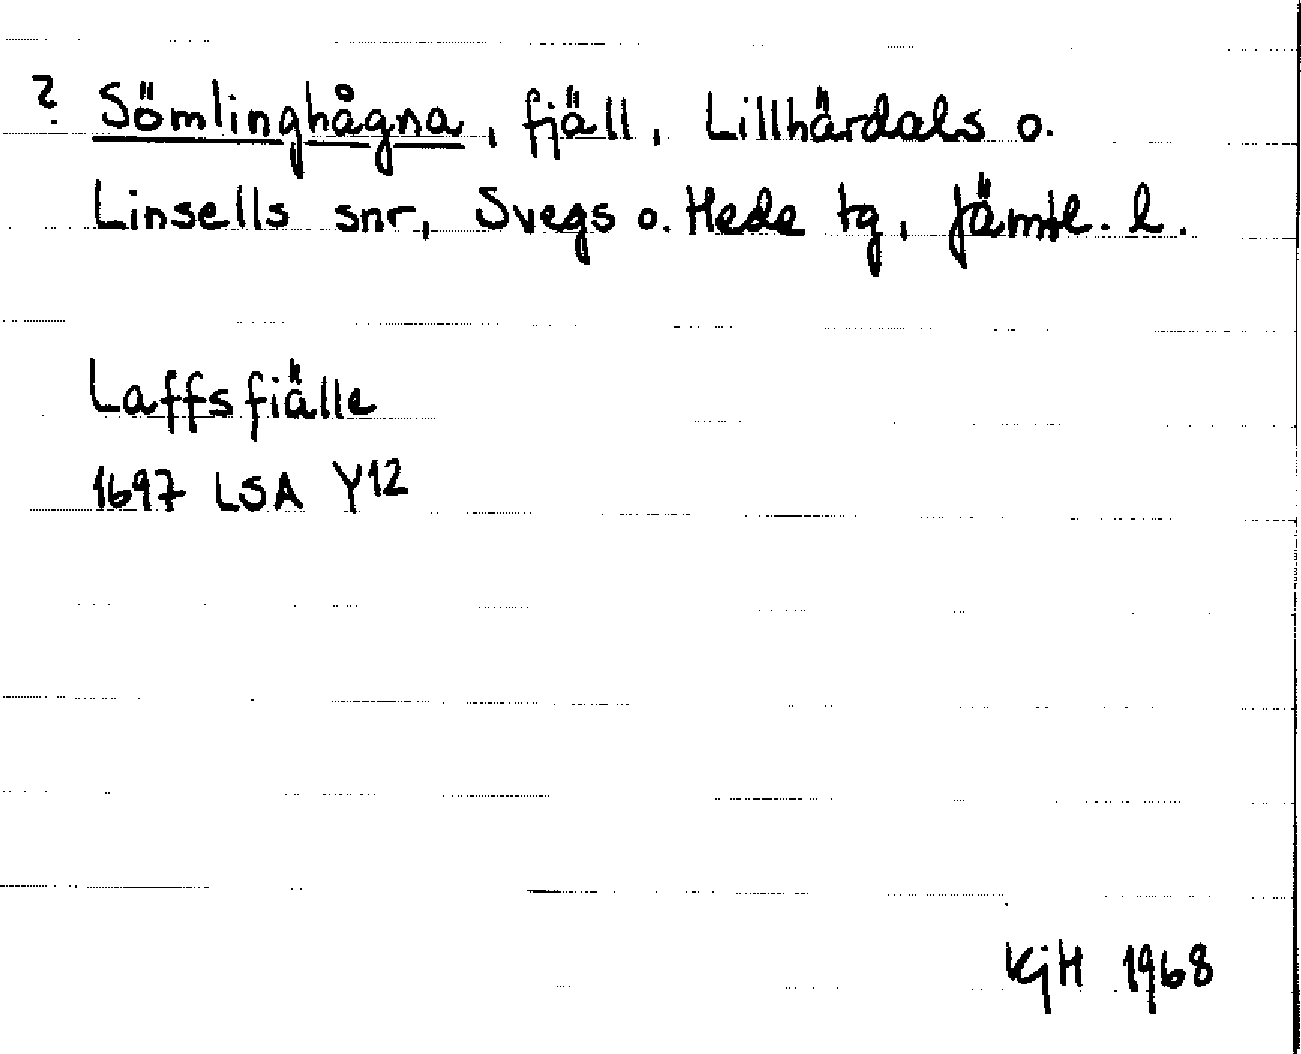 ? Sömlinghågna, fjäll, Lillhärdals o.
Linsells snr, Svegs o. Hede tg, Jämtl. l.
Laffsfiälle
1697 LSA Y12
KjH 1968